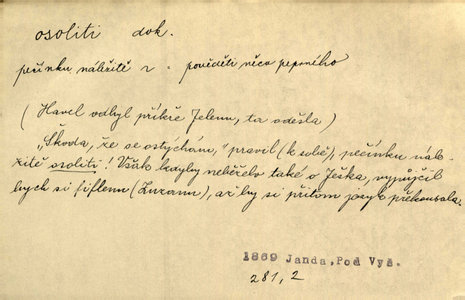 osoliti dok.
pečínku náležitě r. = pověděti něco peprného
(Havel odbyl příkře Jelenu, ta odešla)
„Škoda, že se ostýchám," pravil (k sobě), „pečínku nále-
žitě osoliti! Však kdyby neběželo také o Ješka, vypůjčil
bych si fiflenu (Zuzanu), až by si přitom jazyk překousala.
1869 Janda, Pod Vyš.
281, 2